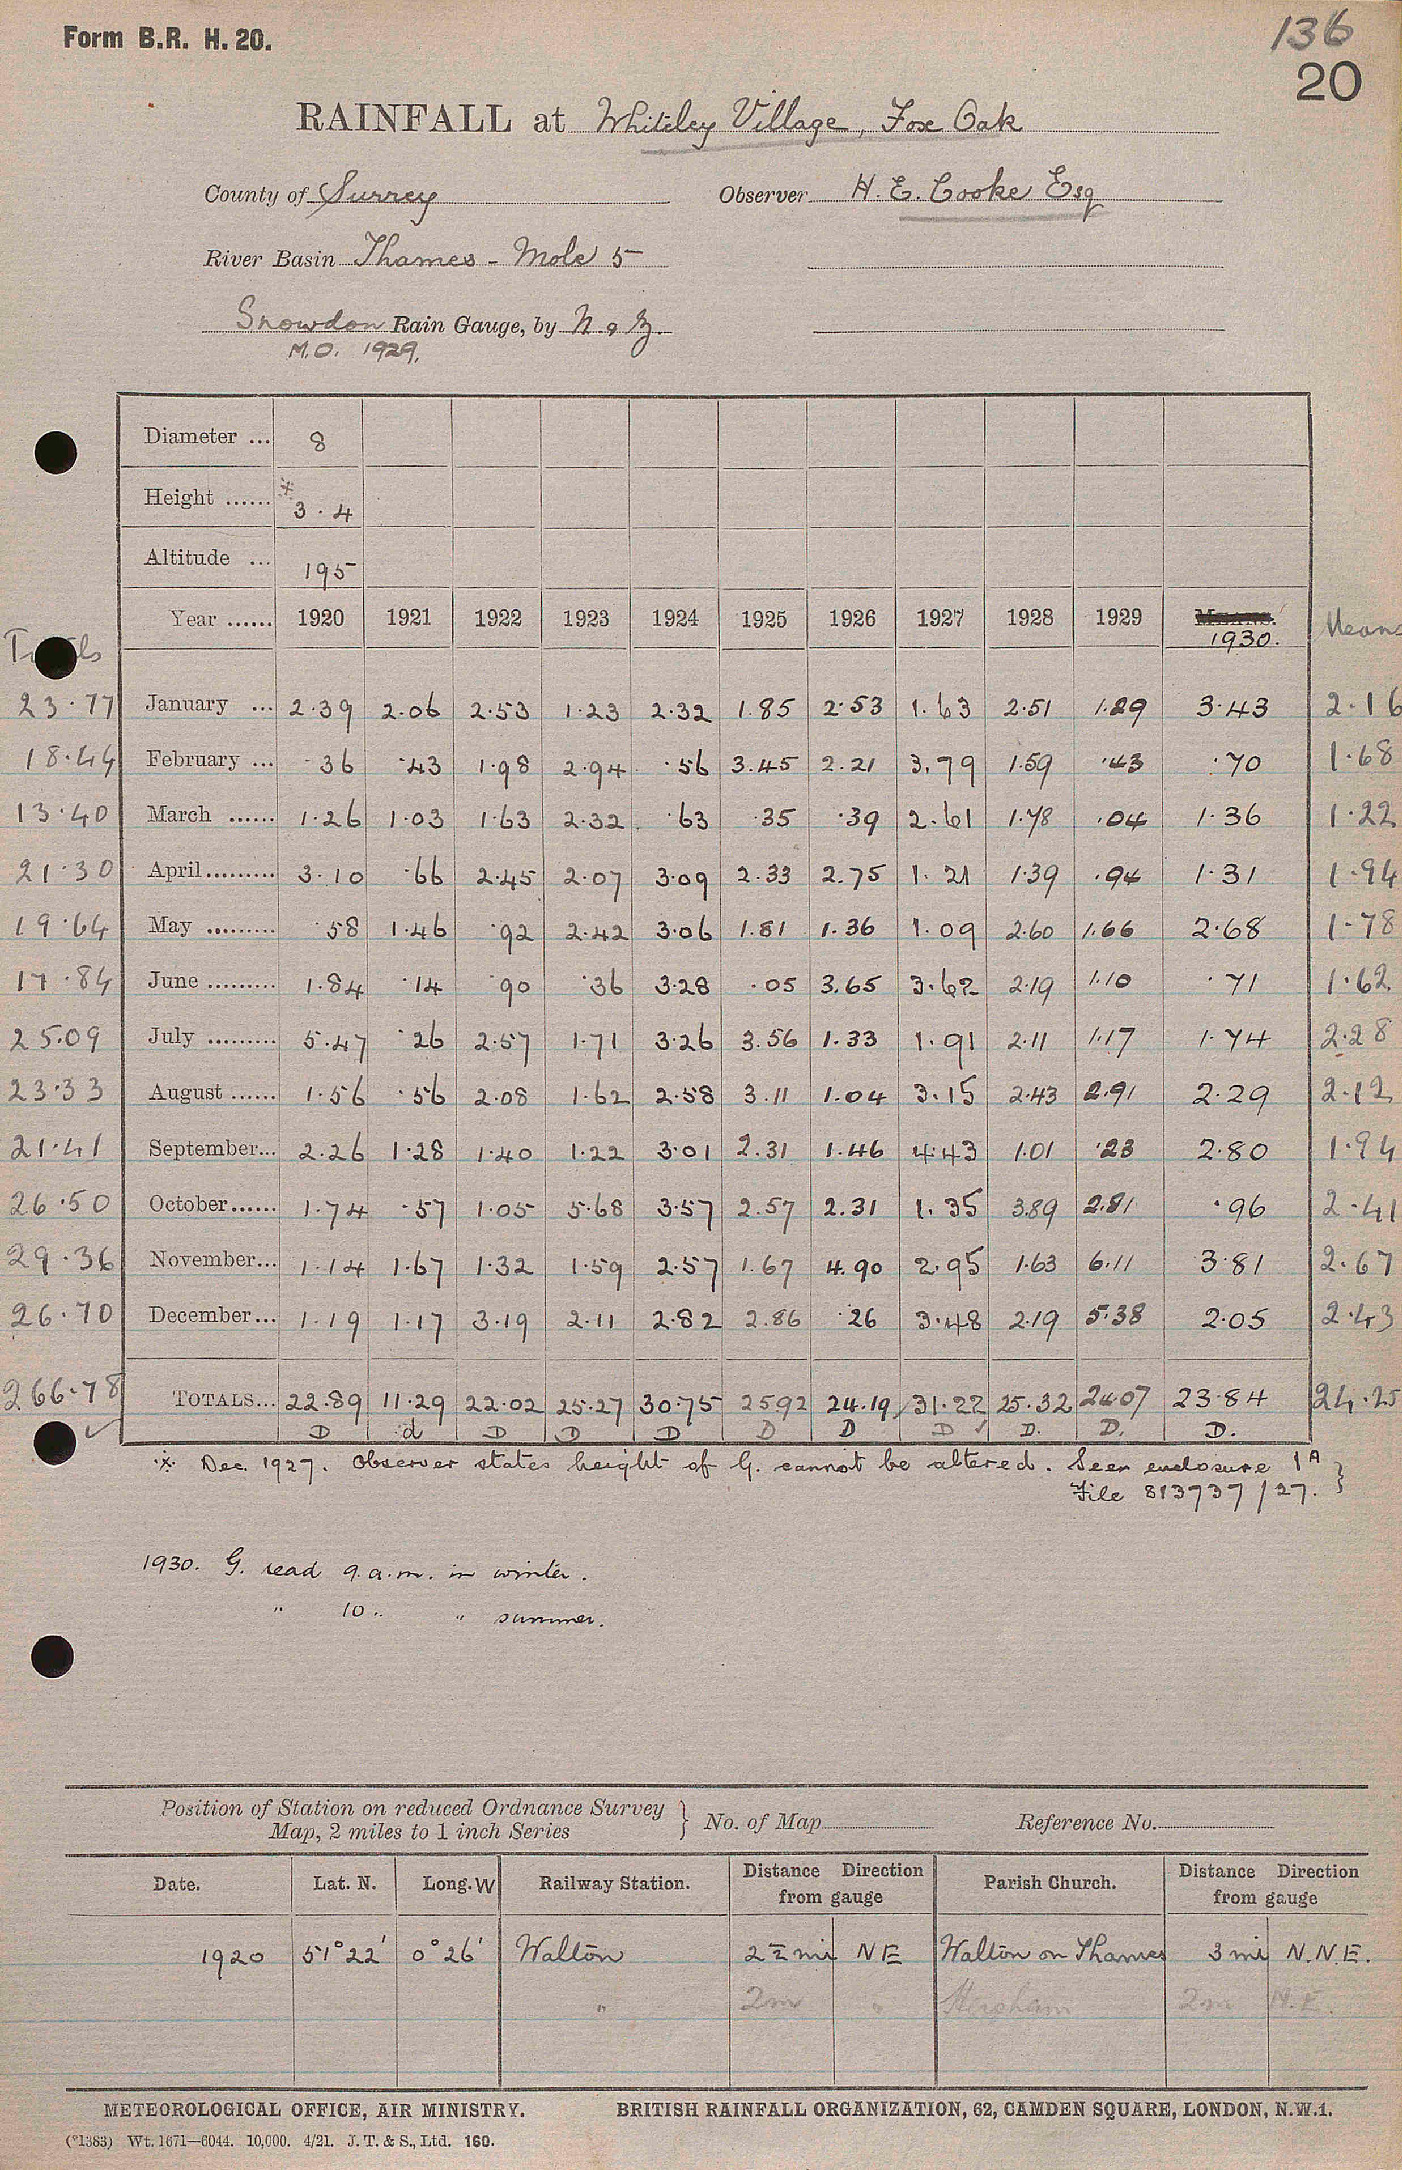 Form B.R. H. 20.
136
20
RAINFALL at Whiteley Village, Fox Oak
County of Surrey Observer H. E. Cooke Esq
River Basin Thames - Mole 5
Snowdon Rain Gauge, by N. & Z.
M.O. 1929.
Diameter ... 8
Height ...... * 3.4
Altitude ... 195
Year ...... 1920 1921 1922 1923 1924 1925 1926 1927 1928 1929 1930. Means
23.77 January ... 2.39 2.06 2.53 1.23 2.32 1.85 2.53 1.63 2.51 1.29 3.43 2.16
18.44 February ... .36 .43 1.98 2.94 .56 3.45 2.21 3.79 1.59 .43 .70 1.68
13.40 March ...... 1.26 1.03 1.63 2.32 .63 .35 .39 2.61 1.78 .04 1.36 1.22
21.30 April ......... 3.10 .66 2.45 2.07 3.09 2.33 2.75 1.21 1.39 .94 1.31 1.94
19.64 May ......... .58 1.46 .92 2.42 3.06 1.81 1.36 1.09 2.60 1.66 2.68 1.78
17.84 June ......... 1.84 .14 .90 .36 3.28 .05 3.65 3.62 2.19 1.10 .71 1.62
25.09 July ......... 5.47 .26 2.57 1.71 3.26 3.56 1.33 1.91 2.11 1.17 1.74 2.28
23.33 August ...... 1.56 .56 2.08 1.62 2.58 3.11 1.04 3.15 2.43 2.91 2.29 2.12
21.41 September... 2.26 1.28 1.40 1.22 3.01 2.31 1.46 4.43 1.01 .23 2.80 1.94
26.50 October...... 1.74 .57 1.05 5.68 3.57 2.57 2.31 1.35 3.89 2.81 .96 2.41
29.36 November... 1.14 1.67 1.32 1.59 2.57 1.67 4.90 2.95 1.63 6.11 3.81 2.67
26.70 December... 1.19 1.17 3.19 2.11 2.82 2.86 .26 3.48 2.19 5.38 2.05 2.43
266.78 TOTALS... 22.89 11.29 22.02 25.27 30.75 25.92 24.19 31.22 25.32 24.07 23.84 24.25
D d D D D D D D D. D. D.
* Dec. 1927. Observer states height of G. cannot be altered. Seen enclosure 1A
File 813737/27. }
1930. G. read 9 a.m. in winter.
" 10 " " summer.
Position of Station on reduced Ordnance Survey
Map, 2 miles to 1 inch Series } No. of Map Reference No.
Date. Lat. N. Long. W Railway Station. Distance Direction from gauge Parish Church. Distance Direction from gauge
1920 51°22' 0°26' Walton 2½ mi NE Walton on Thames 3 mi N.N.E.
" 2m " Hersham 2m N.E.
METEOROLOGICAL OFFICE, AIR MINISTRY. BRITISH RAINFALL ORGANIZATION, 62, CAMDEN SQUARE, LONDON, N.W.1.
(*1383) Wt. 1671—6044. 10,000. 4/21. J. T. & S., Ltd. 160.